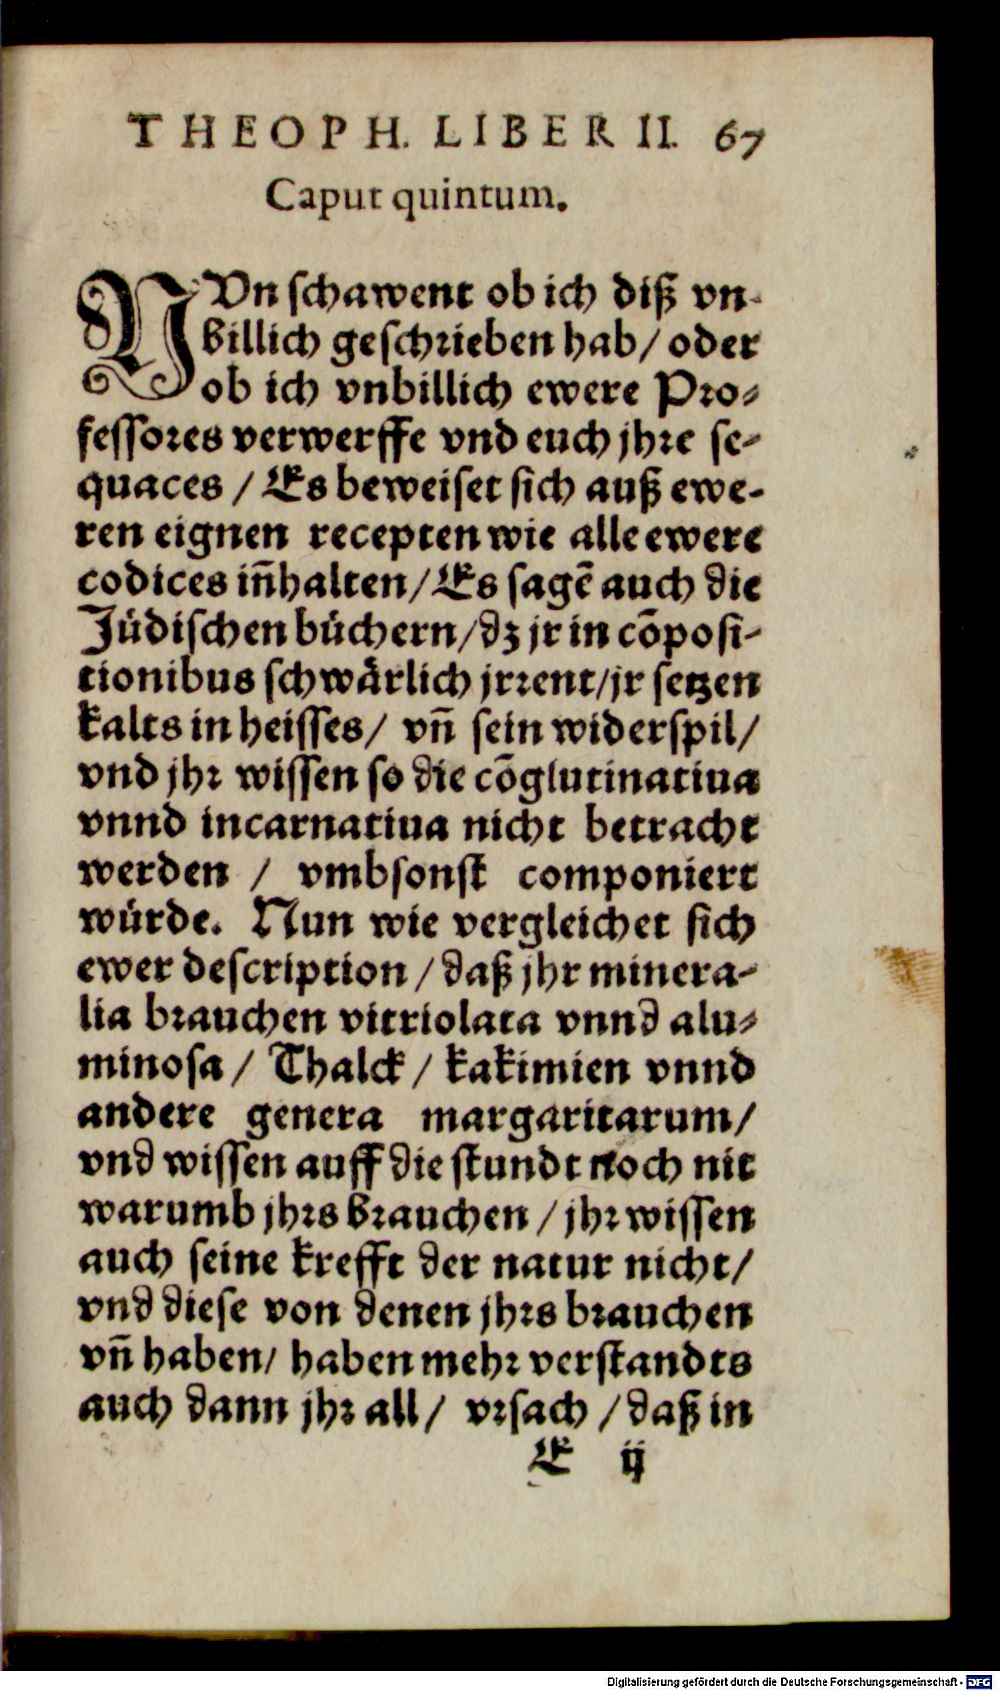 THEOPH. LIBER II. 67
Caput quintum.
NVn schawent ob ich diß vn-
billich geschrieben hab/ oder
ob ich vnbillich ewere Pro-
fessores verwerffe vnd euch jhre se-
quaces / Es beweiset sich auß ewe-
ren eignen recepten wie alle ewere
codices iñhalten/ Es sagē auch die
Jüdischen büchern/ dz jr in cōposi-
tionibus schwårlich jrrent/ jr setzen
kalts in heisses/ vñ sein widerspil/
vnd jhr wissen so die cōglutinatiua
vnnd incarnatiua nicht betracht
werden / vmbsonst componiert
würde. Nun wie vergleichet sich
ewer description / daß jhr minera-
lia brauchen vitriolata vnnd alu-
minosa / Thalck / kakimien vnnd
andere genera margaritarum/
vnd wissen auff die stundt noch nit
warumb jhrs brauchen / jhr wissen
auch seine krefft der natur nicht/
vnd diese von denen jhrs brauchen
vñ haben/ haben mehr verstandts
auch dann jhr all/ vrsach / daß in
E ij
Digitalisierung gefördert durch die Deutsche Forschungsgemeinschaft - DFG